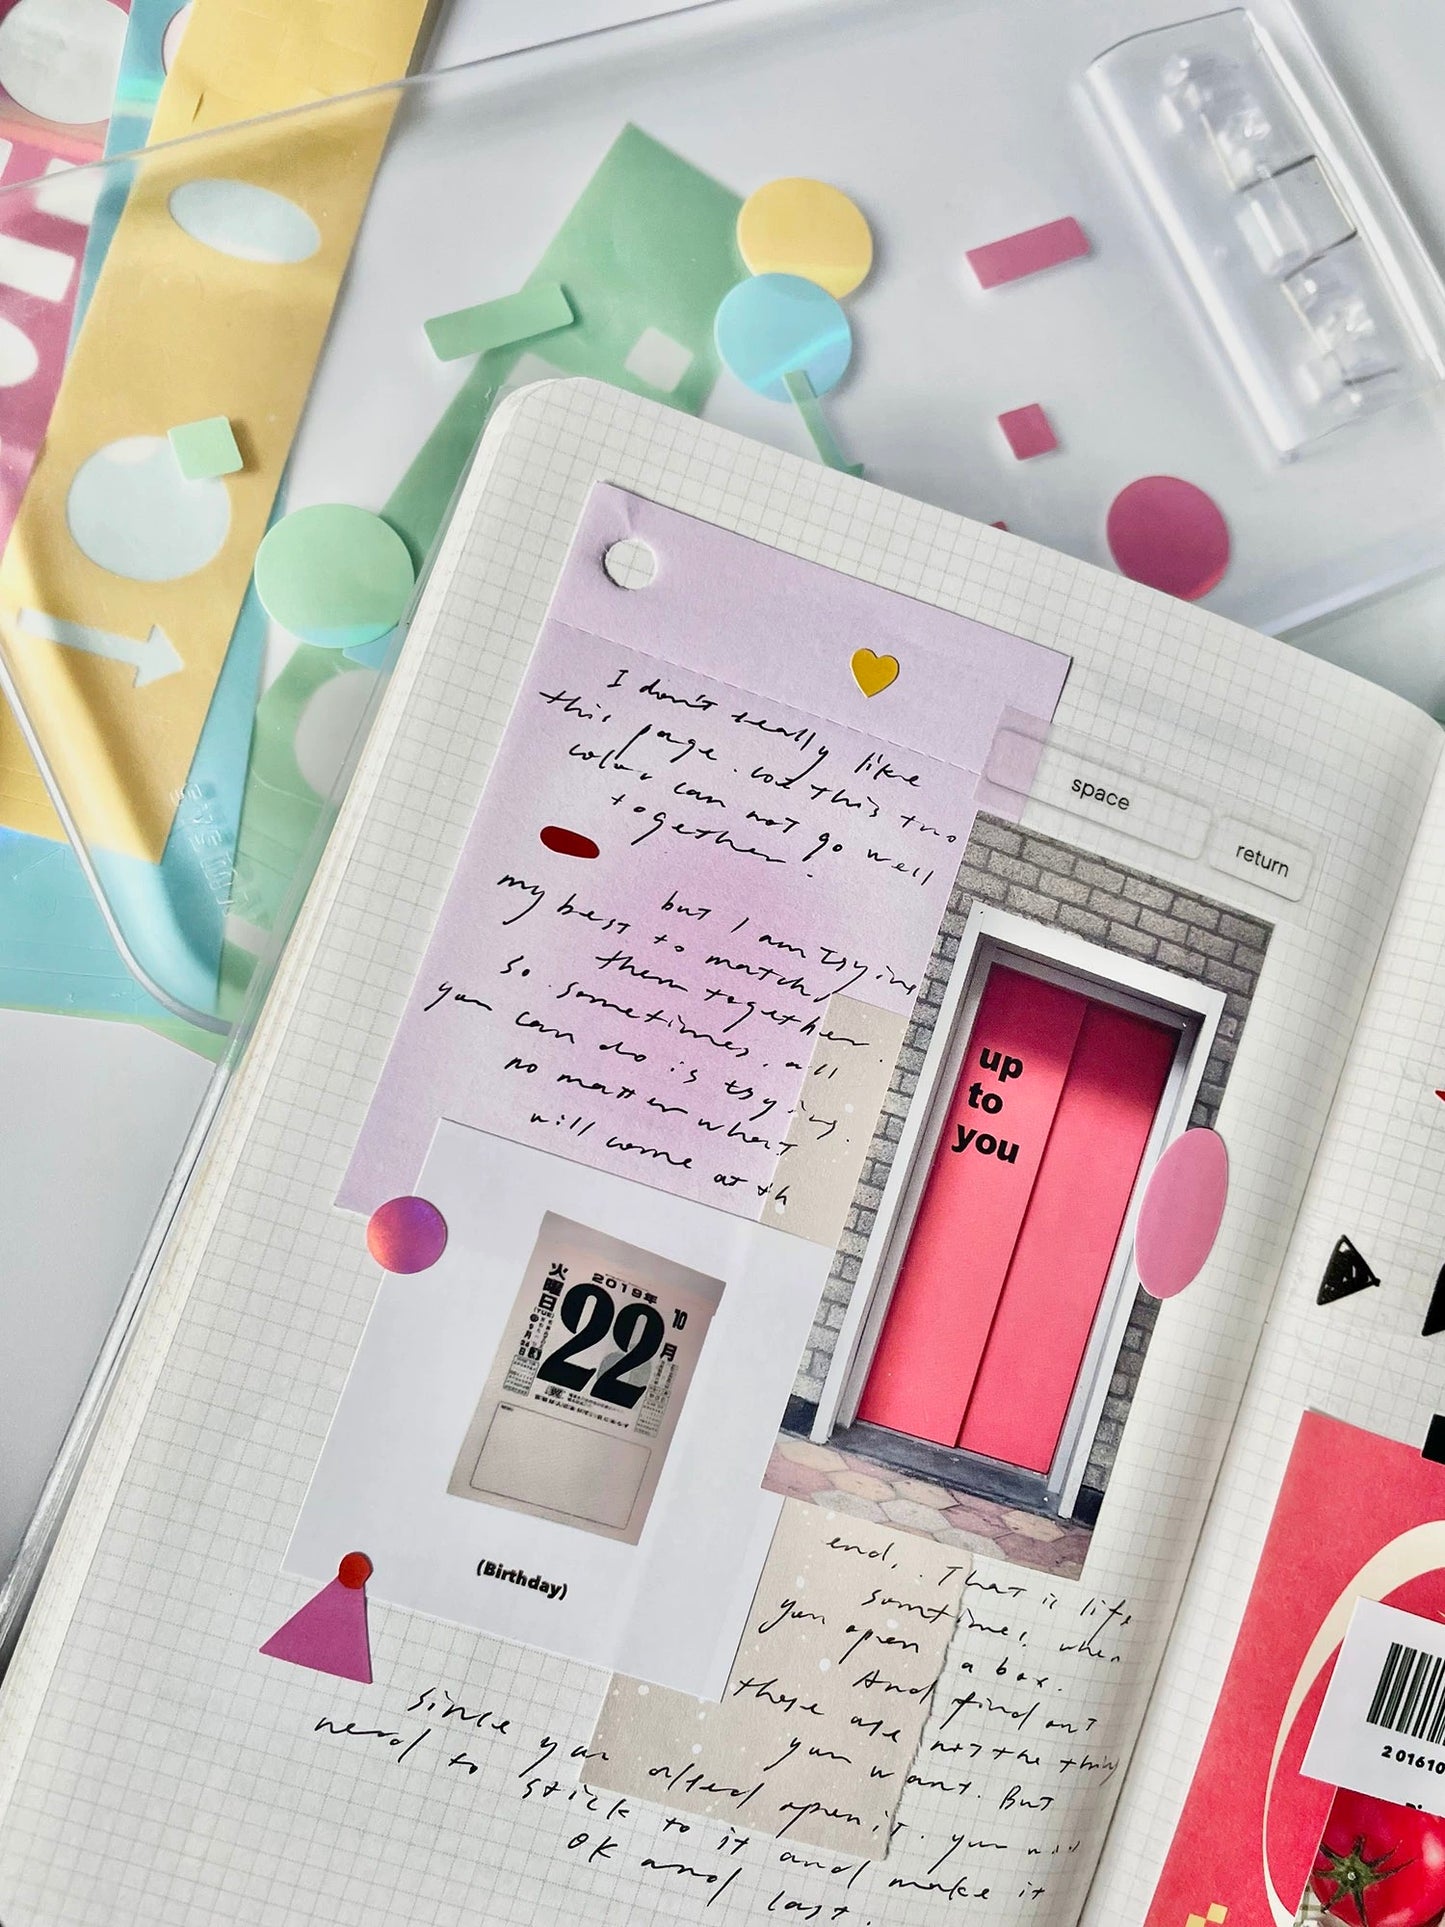 I don't really like
this page. coz this two
color can not go well
together.
but I am trying
my best to match
them together.
so. sometimes. all
you can do is trying.
no matter what
will come at th
space
return
up
to
you
火
曜
日
(TUE)
2019年
22
10
月
(Birthday)
end. That is life
sometimes, when
you open a box.
And find out
these are not the thing
you want. But
since you open it. you
need to stick to it and make it
OK and last.
201610